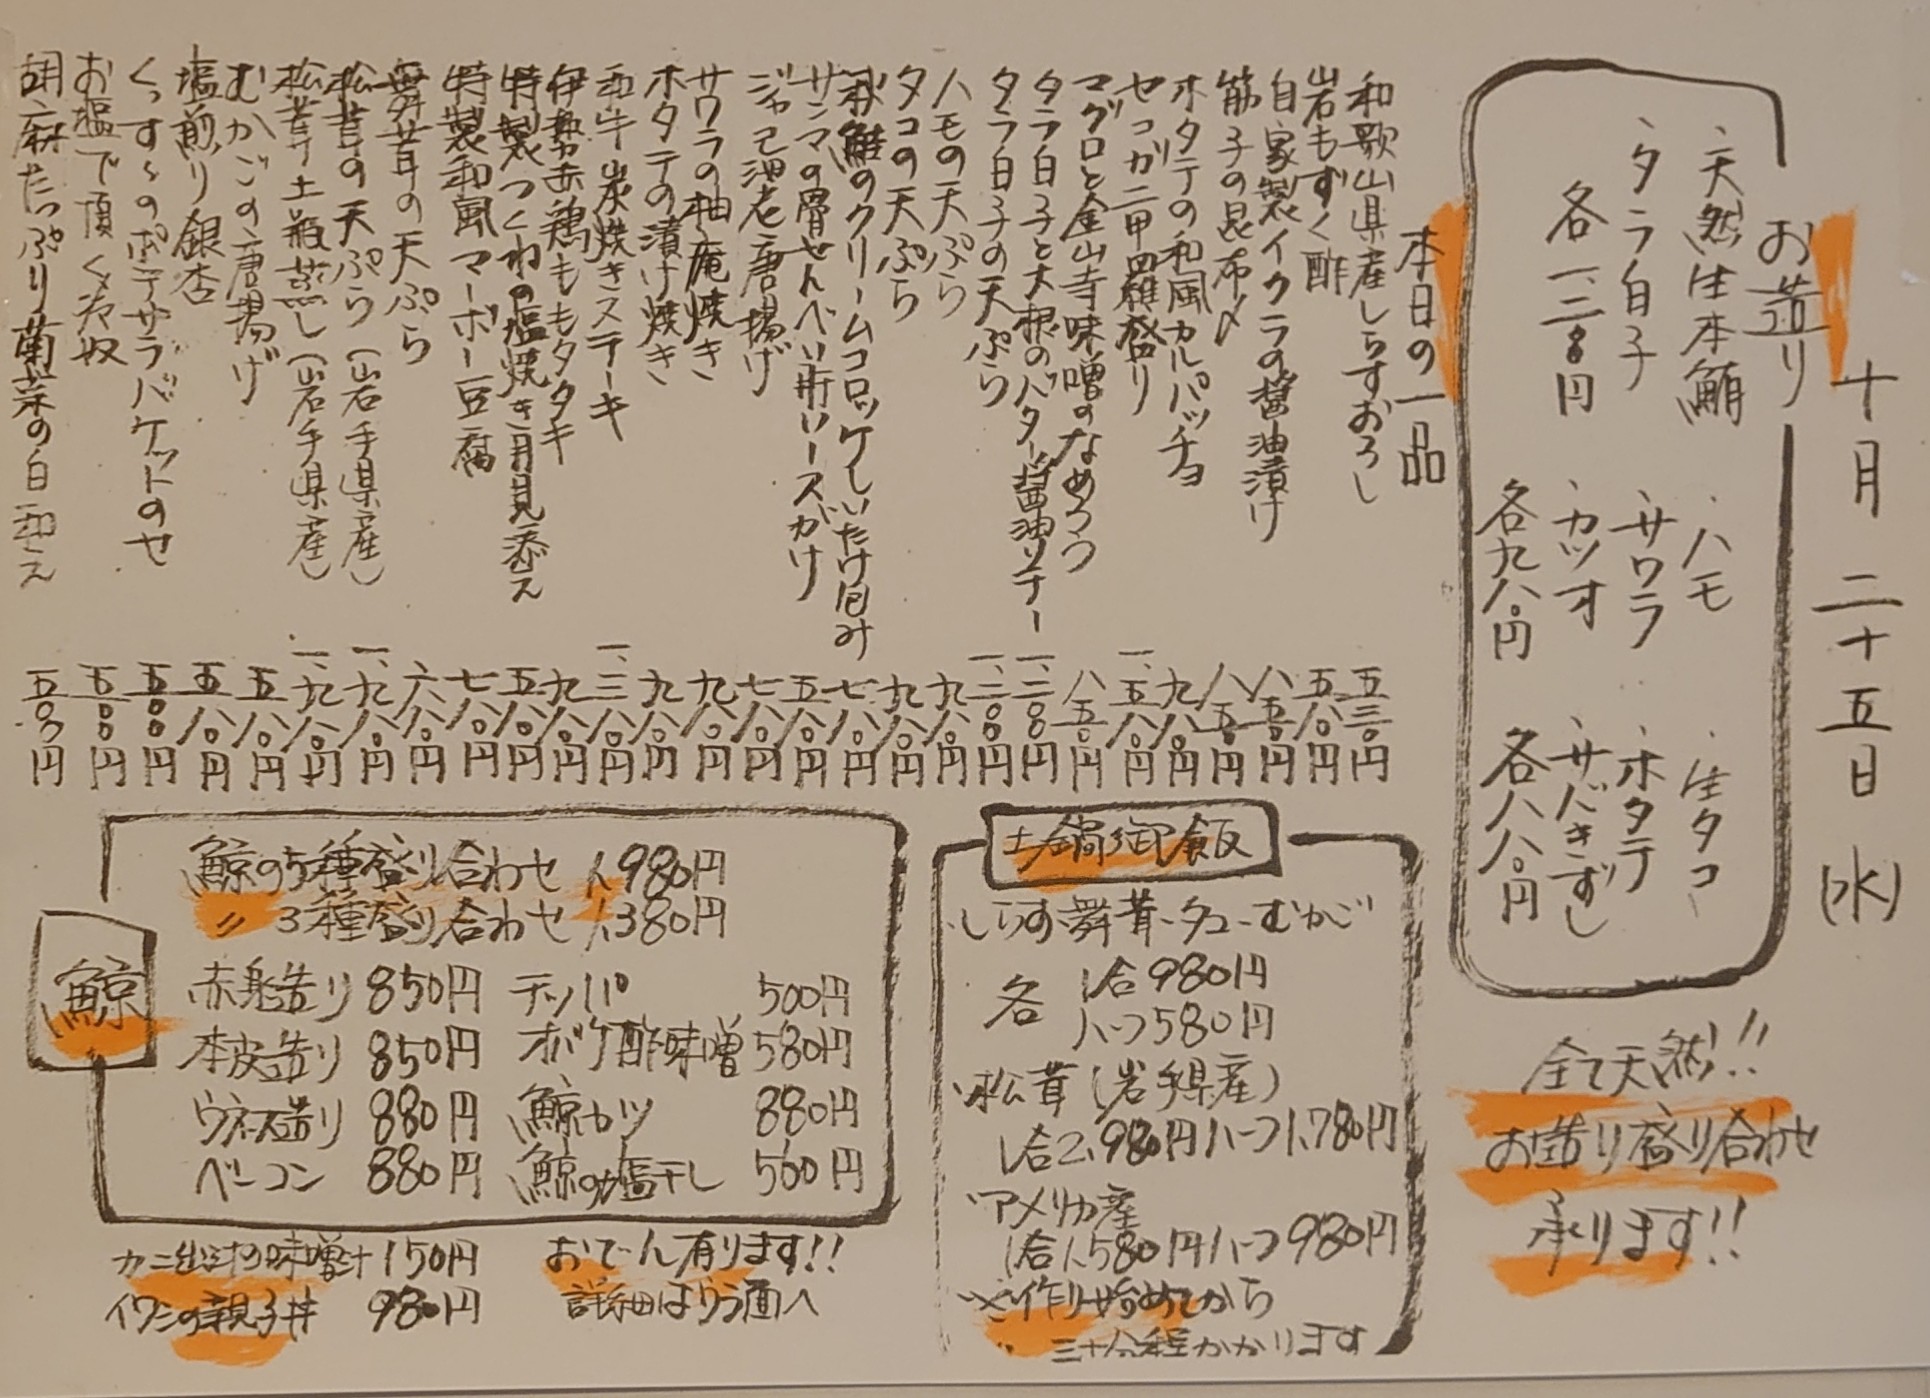 十月二十五日(水)
お造り
・天然生本鮪
・タラ白子
各一、二〇〇円
・ハモ
・サワラ
・カツオ
各九八〇円
・生タコ
・ホタテ
・サバきずし
各八八〇円
全て天然!!
お造り盛り合わせ
承ります!!
本日の一品
和歌山県産しらすおろし 五三〇円
岩もずく酢 五八〇円
自家製イクラの醤油漬け 八五〇円
筋子の昆布〆 八五〇円
ホタテの和風カルパッチョ 九八〇円
セコガニ甲羅盛り 一、五八〇円
マグロと金山寺味噌のなめろう 八五〇円
タラ白子と大根のバター醤油ソテー 一、二〇〇円
タラ白子の天ぷら 一、二〇〇円
ハモの天ぷら 九八〇円
タコの天ぷら 九八〇円
秋鮭のクリームコロッケしいたけ包み 七八〇円
サンマの骨せんべい肝ソースがけ 五八〇円
ジャコ海老唐揚げ 七八〇円
サワラの柚庵焼き 九八〇円
ホタテの漬け焼き 九八〇円
和牛炭焼きステーキ 一、三八〇円
伊勢赤鶏ももタタキ 九八〇円
特製つくねの塩焼き月見添え 五八〇円
特製和風マーボー豆腐 七八〇円
舞茸の天ぷら 六八〇円
松茸の天ぷら(岩手県産) 一、九八〇円
松茸土瓶蒸し(岩手県産) 一、九八〇円
むかごの唐揚げ 五八〇円
塩煎り銀杏 五八〇円
くっすぅのポテサラバケットのせ 五〇〇円
お塩で頂く冷奴 五〇〇円
胡麻たっぷり菊菜の白和え 五〇〇円
土鍋御飯
・しらす・舞茸・タコ・むかご
各 1合980円
ハーフ580円
・松茸(岩手県産)
1合2,980円ハーフ1,780円
・アメリカ産
1合1,580円ハーフ980円
※作り始めてから
三十分程かかります
鯨
鯨の5種盛り合わせ 1,980円
〃 3種盛り合わせ 1,380円
赤身造り 850円 テッパ 500円
本皮造り 850円 オバケ酢味噌 580円
ウネス造り 880円 鯨カツ 880円
ベーコン 880円 鯨の塩干し 500円
カニ出汁の味噌汁 150円
イワシの親子丼 980円
おでん有ります!!
詳細はうら面へ